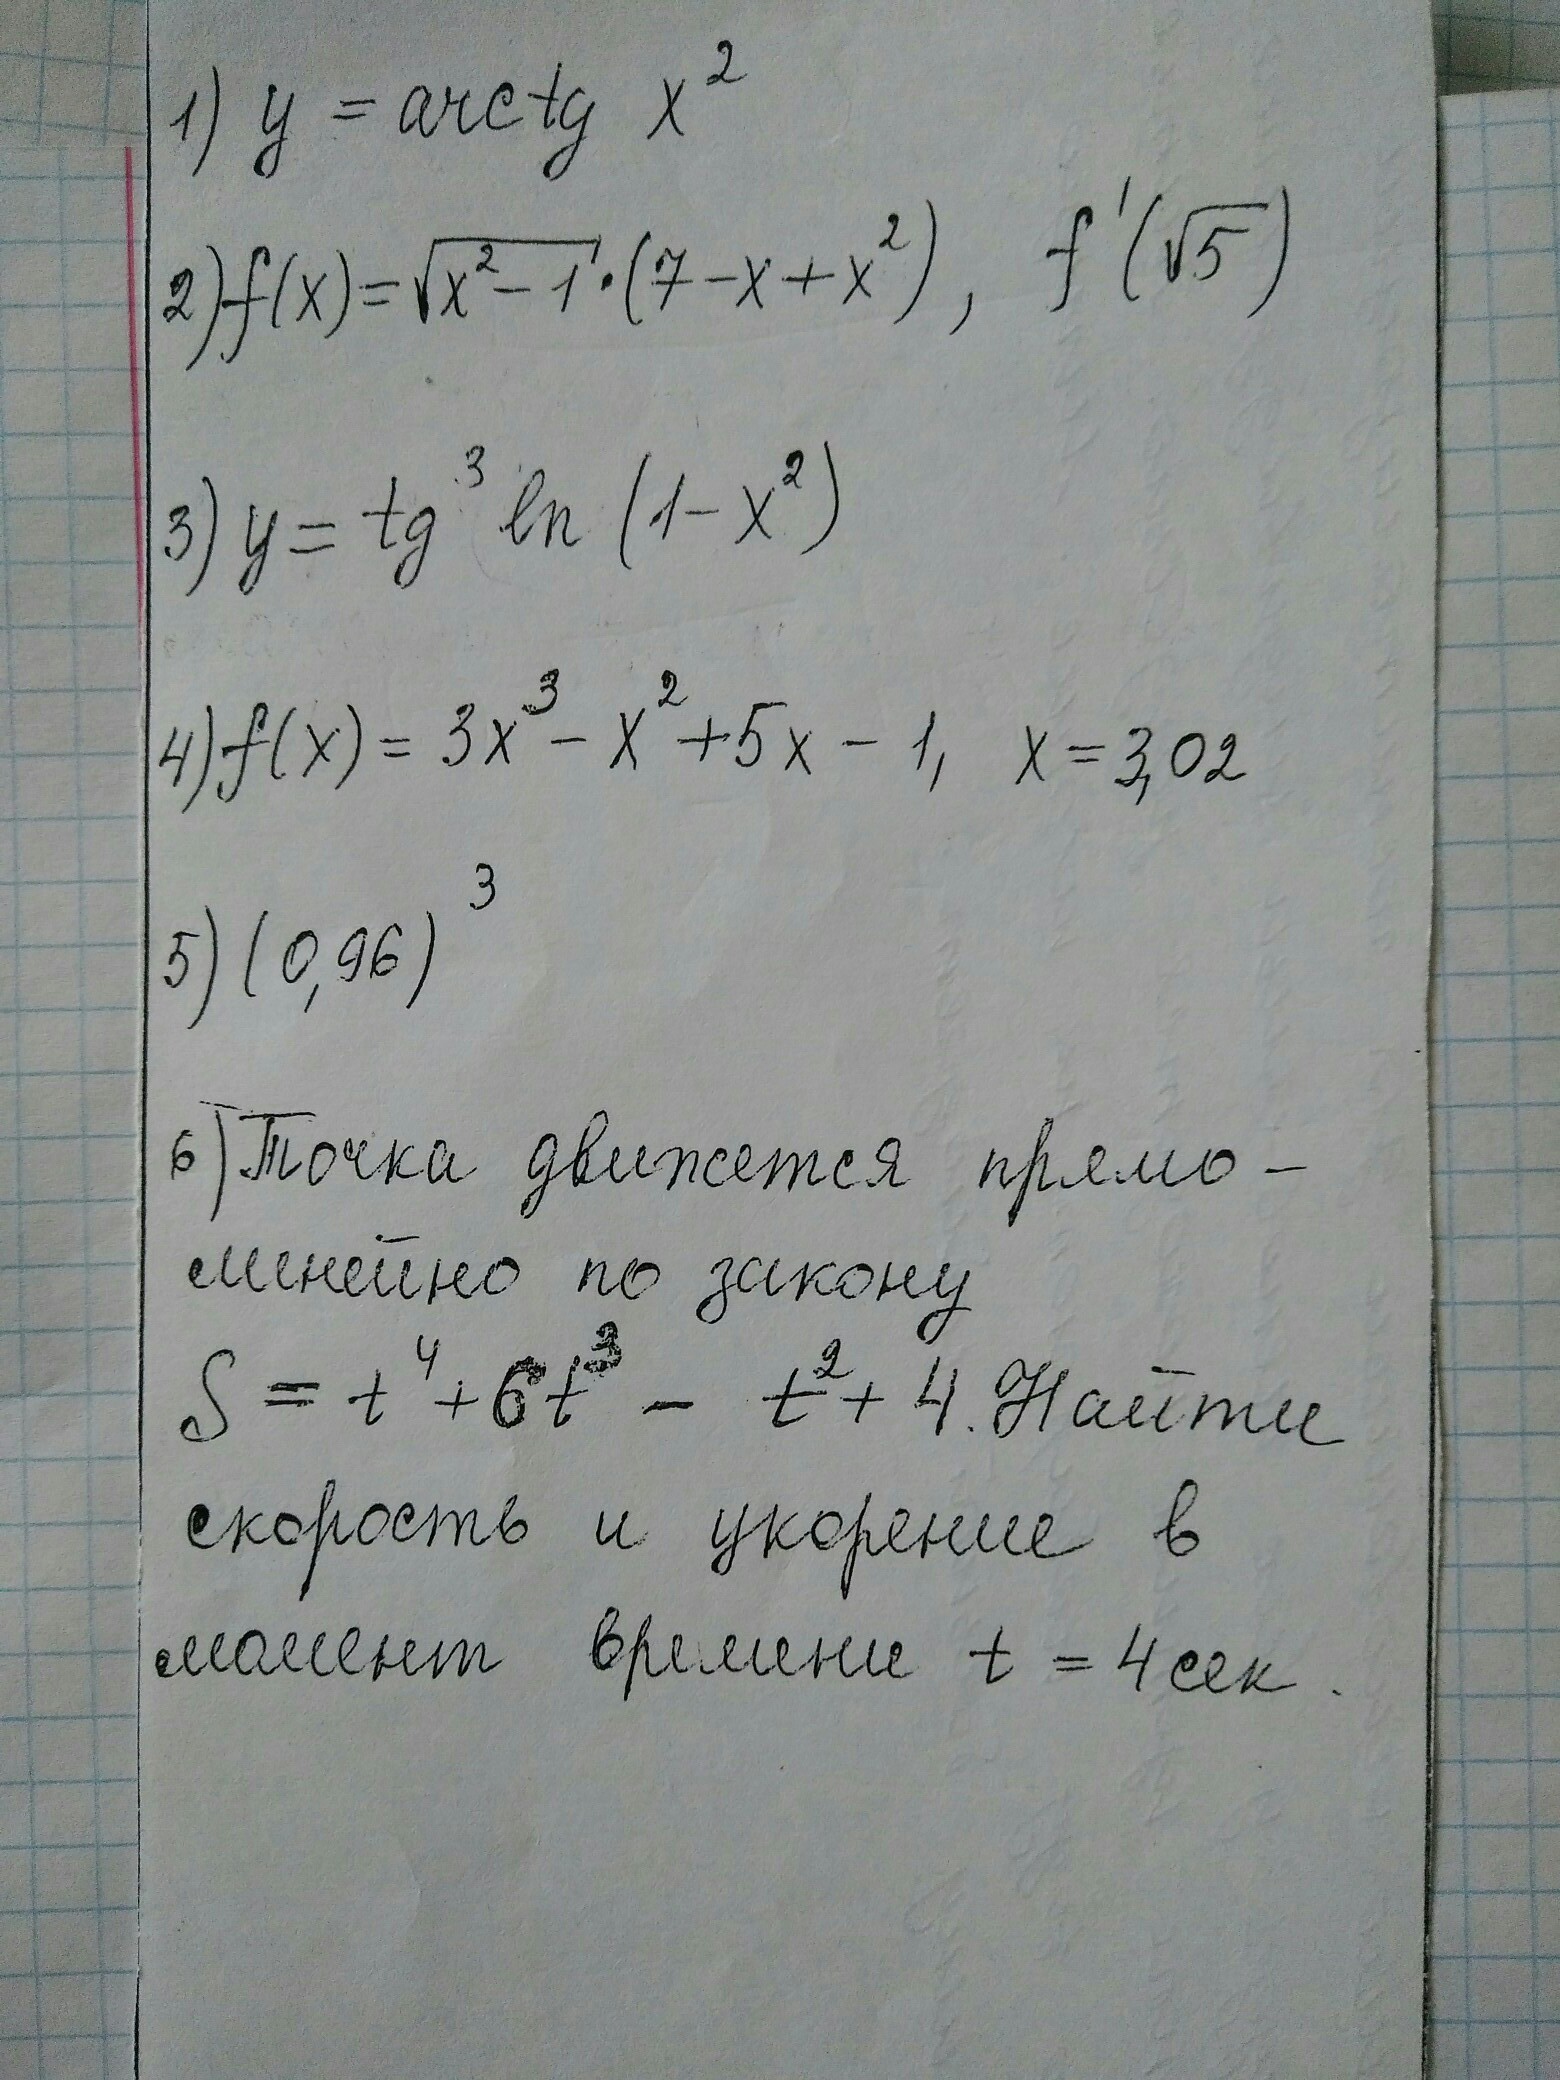 1) y = arctg x²
2) f(x) = √(x² - 1) · (7 - x + x²), f'(√5)
3) y = tg³ ln (1 - x²)
4) f(x) = 3x³ - x² + 5x - 1, x = 3,02
5) (0,96)³
6) Точка движется прямо-
линейно по закону
S = t⁴ + 6t³ - t² + 4. Найти
скорость и укорение в
момент времени t = 4 сек.